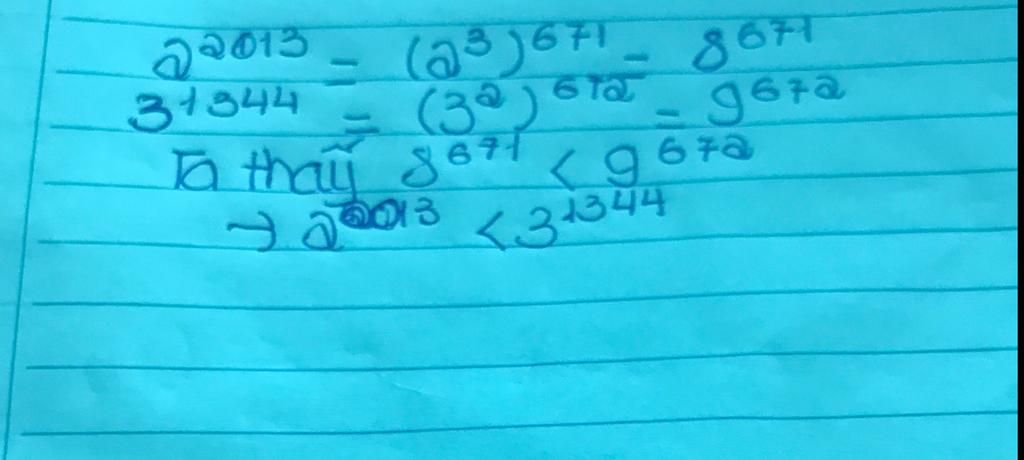 2²⁰¹³ = (2³)⁶⁷¹ = 8⁶⁷¹
3¹³⁴⁴ = (3²)⁶⁷² = 9⁶⁷²
Ta thấy 8⁶⁷¹ < 9⁶⁷²
→ 2²⁰¹³ < 3¹³⁴⁴